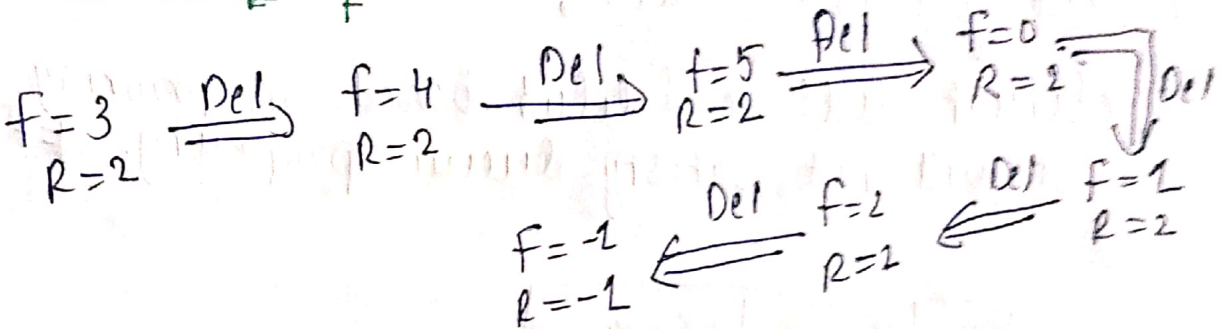 F
F=3
R=2
Del
f=4
R=2
Del
f=5
R=2
Del
f=0
R=2
Del
F=1
R=2
Del
f=2
R=2
Del
F=-1
R=-1